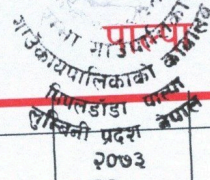 पाल्पा
गाउँपालिका
गाउँकार्यपालिकाको कार्यालय
पिपलडाँडा पाल्पा
लुम्बिनी प्रदेश नेपाल
२०७३